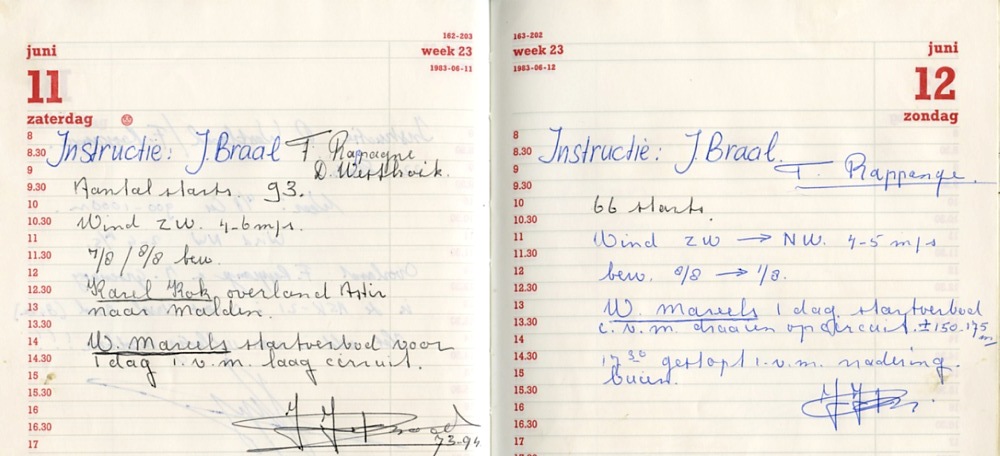 162-203
juni
week 23
1983-06-11
11
zaterdag
8
8.30 Instructie: J. Braal F. Rapagne
9 D. Westhoik.
9.30 Aantal starts 93.
10
10.30 Wind ZW. 4-6 m/s.
11
11.30 7/8 / 8/8 bew.
12
12.30 Karel Kok overland Astir
13 naar Malden.
13.30
14 W. Marcels startverbod voor
14.30 1 dag i.v.m. laag circuit.
15
15.30
16
16.30
17 73-94
163-202
week 23
juni
1983-06-12
12
zondag
8
8.30 Instructie: J. Braal.
9 F. Rappange.
9.30
10 66 starts.
10.30
11 Wind ZW → NW. 4-5 m/s
11.30
12 bew. 8/8 → 1/8.
12.30
13 W. Marcels 1 dag startverbod
13.30 i.v.m. draaien op circuit. ± 150-175 m
14
14.30 17.30 gestopt i.v.m. nadering
15 buien.
15.30
16
16.30
17